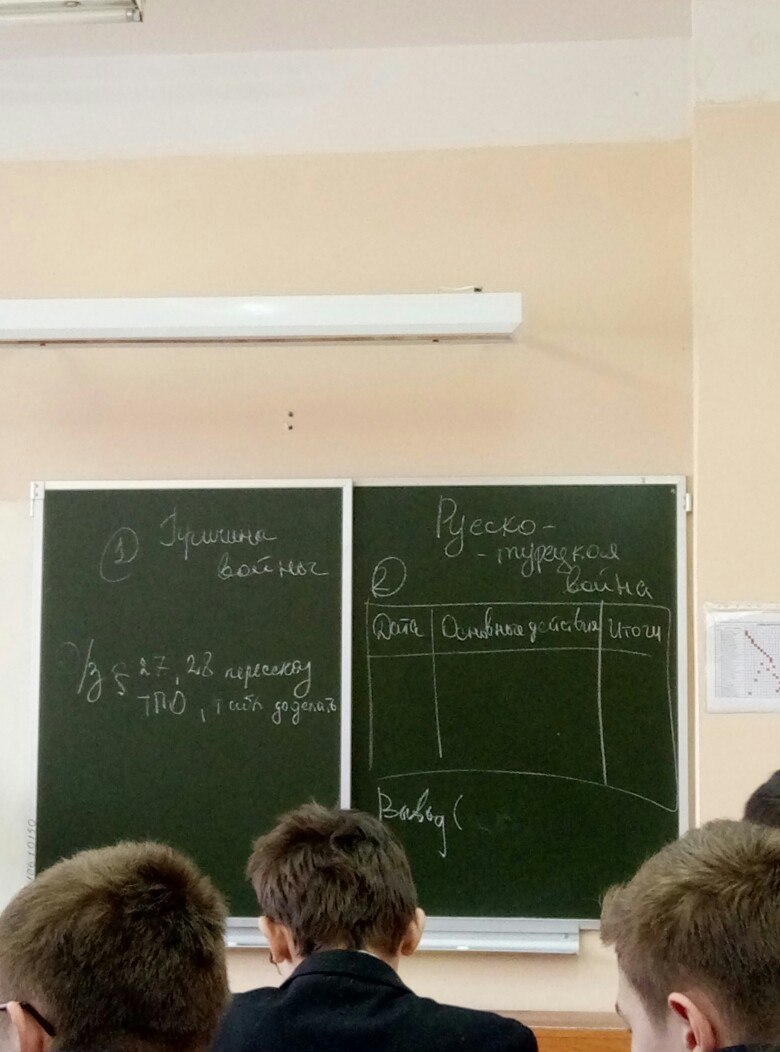 1 Причины
войны
/з § 27, 28 пересказ
ТПО, табл доделать
Русско-
-турецкая
война
2
Дата Основные действия Итоги
Вывод (